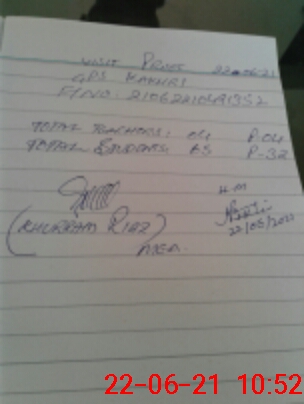 VISIT PROOF 22-06-21
GPS
F/NO: 
TOTAL TEACHERS: 04 P-04
TOTAL STUDENTS: 45 P-32
H.M
(KHURRAM RIAZ) 22/06/2021
MEA.
22-06-21 10:52